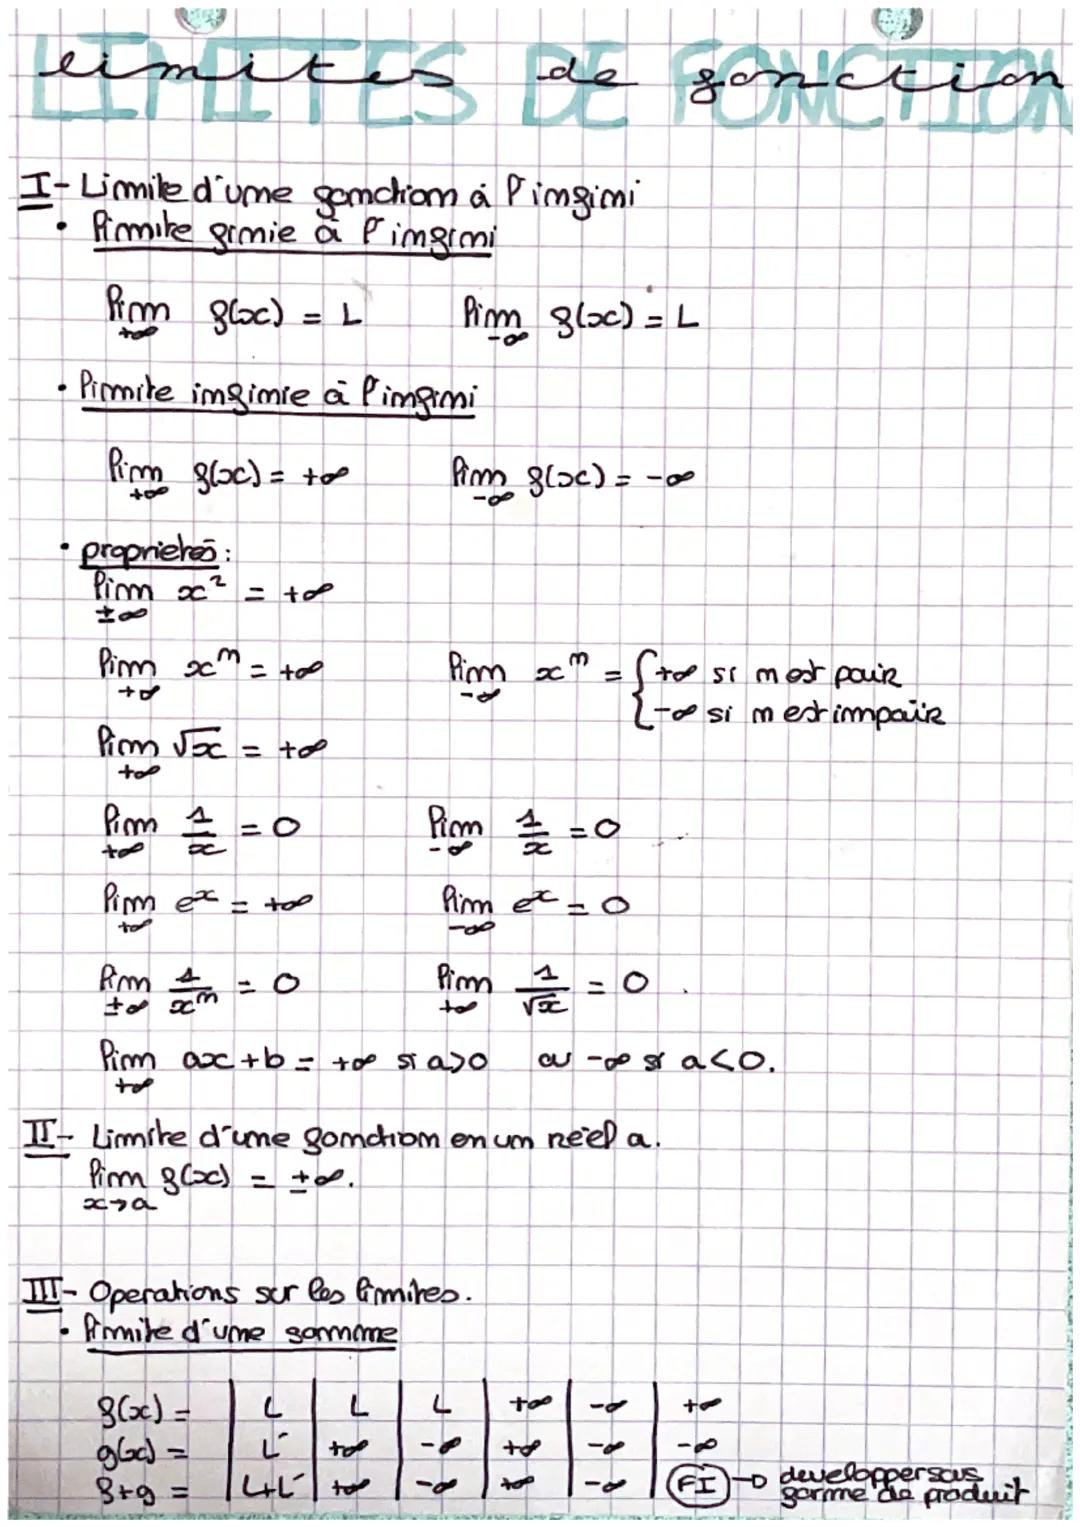 LIMITES DE FONCTION
limites de fonction
I- Limite d'une fonction à l'infini
• limite finie à l'infini
lim f(x) = L lim f(x) = L
+∞ -∞
• limite infinie à l'infini
lim f(x) = +∞ lim f(x) = -∞
+∞ -∞
• propriétés :
lim x² = +∞
±∞
lim xⁿ = +∞ lim xⁿ = { +∞ si n est pair
+∞ -∞ -∞ si n est impair
lim √x = +∞
+∞
lim 1/x = 0 lim 1/x = 0
+∞ -∞
lim eˣ = +∞ lim eˣ = 0
+∞ -∞
lim 1/xⁿ = 0 lim 1/√x = 0
±∞ +∞
lim ax+b = +∞ si a>0 ou -∞ si a<0.
+∞
II- Limite d'une fonction en un réel a.
lim f(x) = ±∞.
x→a
III- Operations sur les limites.
• limite d'une somme
f(x) = | L | L | L | +∞ | -∞ | +∞
g(x) = | L' | +∞ | -∞ | +∞ | -∞ | -∞
f+g = | L+L' | +∞ | -∞ | +∞ | -∞ | FI → developper sous
forme de produit